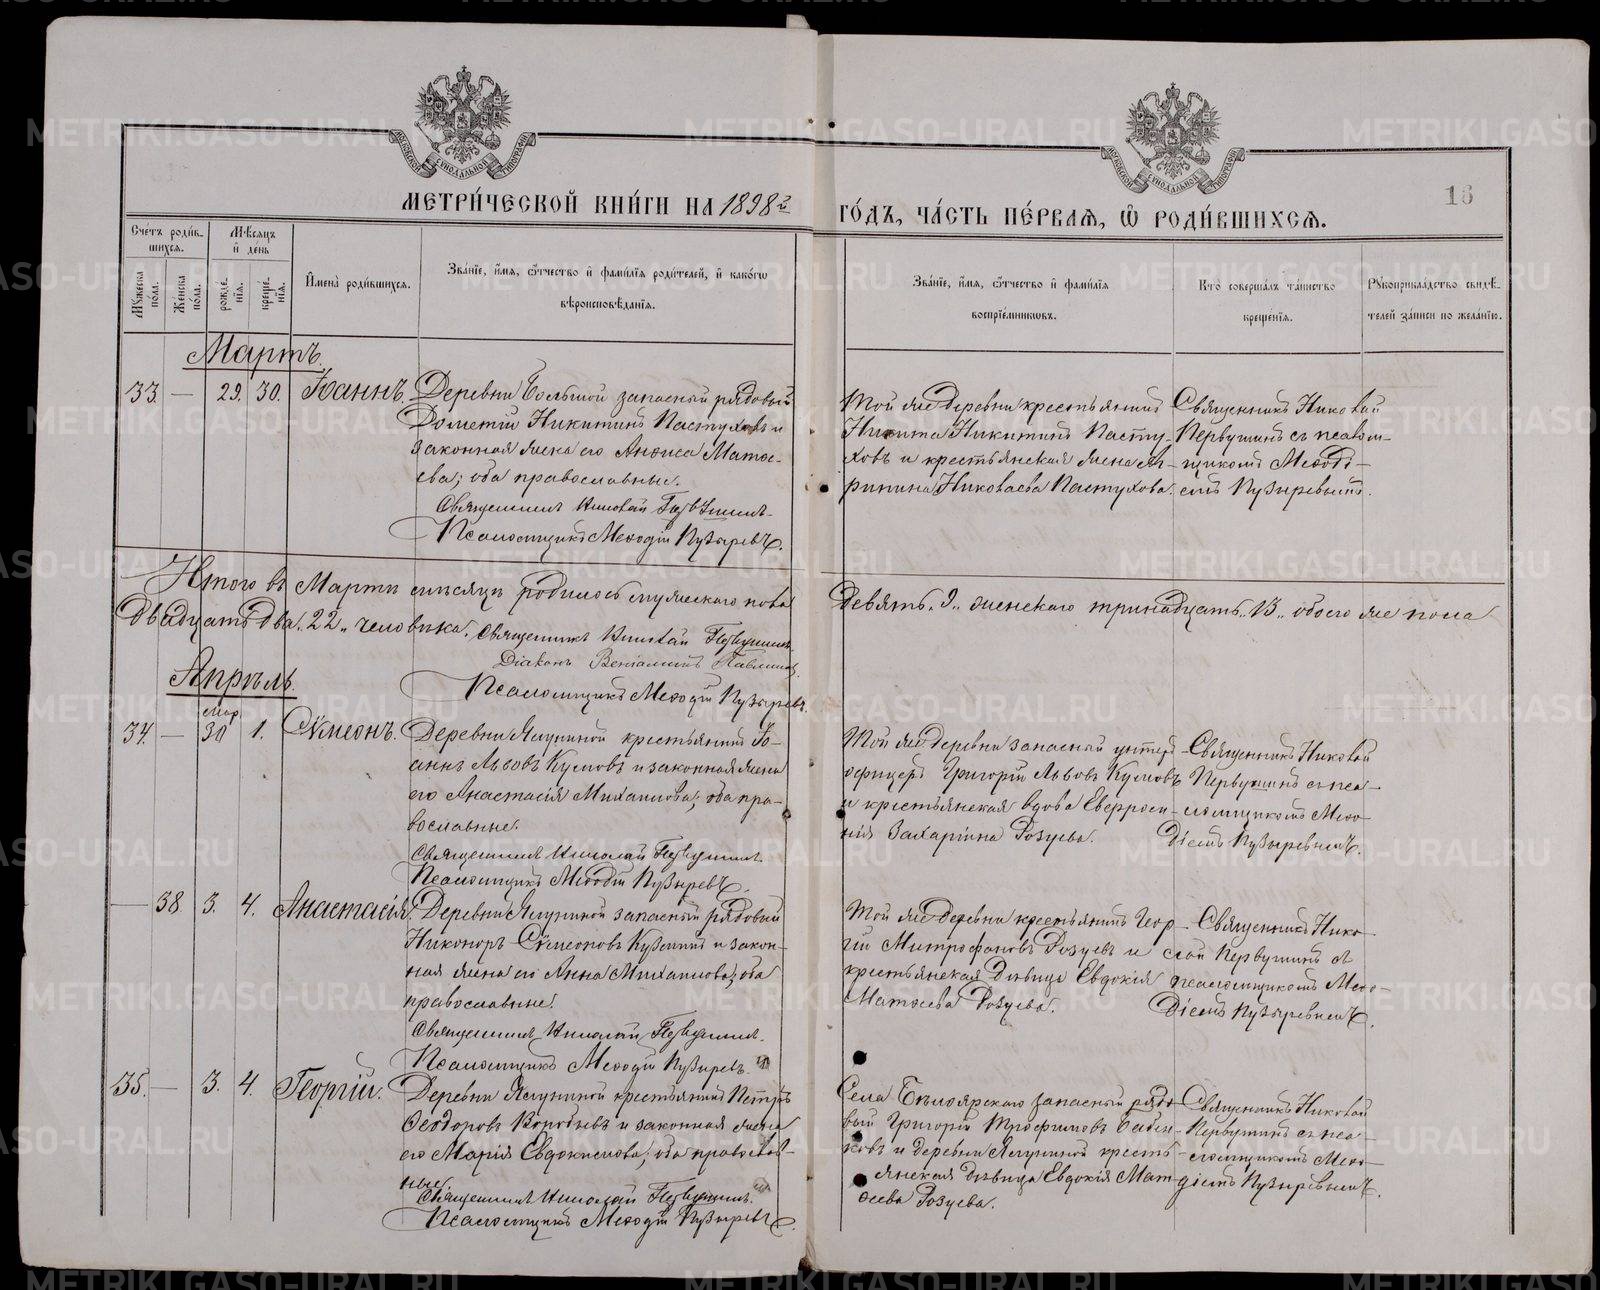 МЕТРИ́ЧЕСКОЙ КНИ́ГИ НА 1898 г
ГО́ДЪ, ЧА́СТЬ ПЕ́РВАѦ, Ѽ РОДИ́ВШИХСѦ.
16
Сче́тъ роди́в-
шихся.
Мѣ́сяцъ
и҆ де́нь
Мꙋ́жеска по́ла.
Же́нска по́ла.
рожде́нїѧ.
креще́нїѧ.
И҆мена̀ роди́вшихся.
Зва́нїе, и҆́мя, ѻ҆́тчество и҆ фами́лїя роди́телей, и҆ како́гѡ
вѣроисповѣ́данїя.
Зва́нїе, и҆́мя, ѻ҆́тчество и҆ фами́лїя
воспрїе́мникѡвъ.
Кто̀ соверша́лъ та́инство
креще́нїя.
Рꙋкоприкла́дство свидѣ́-
телей за́писи по жела́нїю.
Мартъ.
33. — 29. 30. Іоаннъ. Деревни Большой запасный рядовый
Дометій Никитинъ Пастуховъ и
законная жена его Анѳиса Матѳе-
ева; оба православные.
Священникъ Николай Первушинъ.
Псаломщикъ Меѳодій Пузыревъ.
Той же деревни крестьянинъ
Никита Никитинъ Пасту-
ховъ и крестьянская жена Ак-
Николаева Пастухова.
Священникъ Николай
Первушинъ съ псалом-
щикомъ Меѳоді-
емъ Пузыревымъ.
Итого въ Мартѣ мѣсяцѣ родилось мужескаго пола
девять „9„ женскаго тринадцать „13„ обоего же пола
двадцать два „22„ человѣка. Священникъ Николай Первушинъ.
Діаконъ Веніаминъ
Псаломщикъ Меѳодій Пузыревъ.
Апрѣль.
34. — Мар. 30 1. Сѵмеонъ. Деревни Ялуниной крестьянинъ Іо-
аннъ Львовъ Кузмовъ и законная жена
его Анастасія Михаилова; оба пра-
вославные.
Священникъ Николай Первушинъ.
Псаломщикъ Меѳодій Пузыревъ.
Той же деревни запасный унтеръ-
офицеръ Григорій Львовъ
и крестьянская вдова
Захаріина Розуева.
Священникъ Николай
Первушинъ съ пса-
ломщикомъ Меѳо-
діемъ Пузыревымъ.
— 38. 3. 4. Анастасія. Деревни Ялуниной запасный рядовый
Никаноръ Сѵмеоновъ Кузминъ и закон-
ная жена его Анна Михаилова; оба
православные.
Священникъ Николай Первушинъ.
Псаломщикъ Меѳодій Пузыревъ.
Той же деревни крестьянинъ Геор-
гій Митрофановъ Розуевъ и
крестьянская дѣвица Евдокія
Матѳеева Розуева.
Священникъ Нико-
лай Первушинъ съ
псаломщикомъ Меѳо-
діемъ Пузыревымъ.
35. — 3. 4. Георгій. Деревни Ялуниной крестьянинъ Петръ
Ѳеодоровъ Воробьевъ и законная жена
его Марія Евдокимова; оба православ-
ные.
Священникъ Николай Первушинъ.
Псаломщикъ Меѳодій Пузыревъ.
Села Бѣлоярскаго запасный рядо-
вый Григорій Трофимовъ
и деревни Ялуниной кресть-
янская дѣвица Евдокія Мат-
ѳеева Розуева.
Священникъ Николай
Первушинъ съ пса-
ломщикомъ Меѳо-
діемъ Пузыревымъ.
METRIKI.GASO-URAL.RU